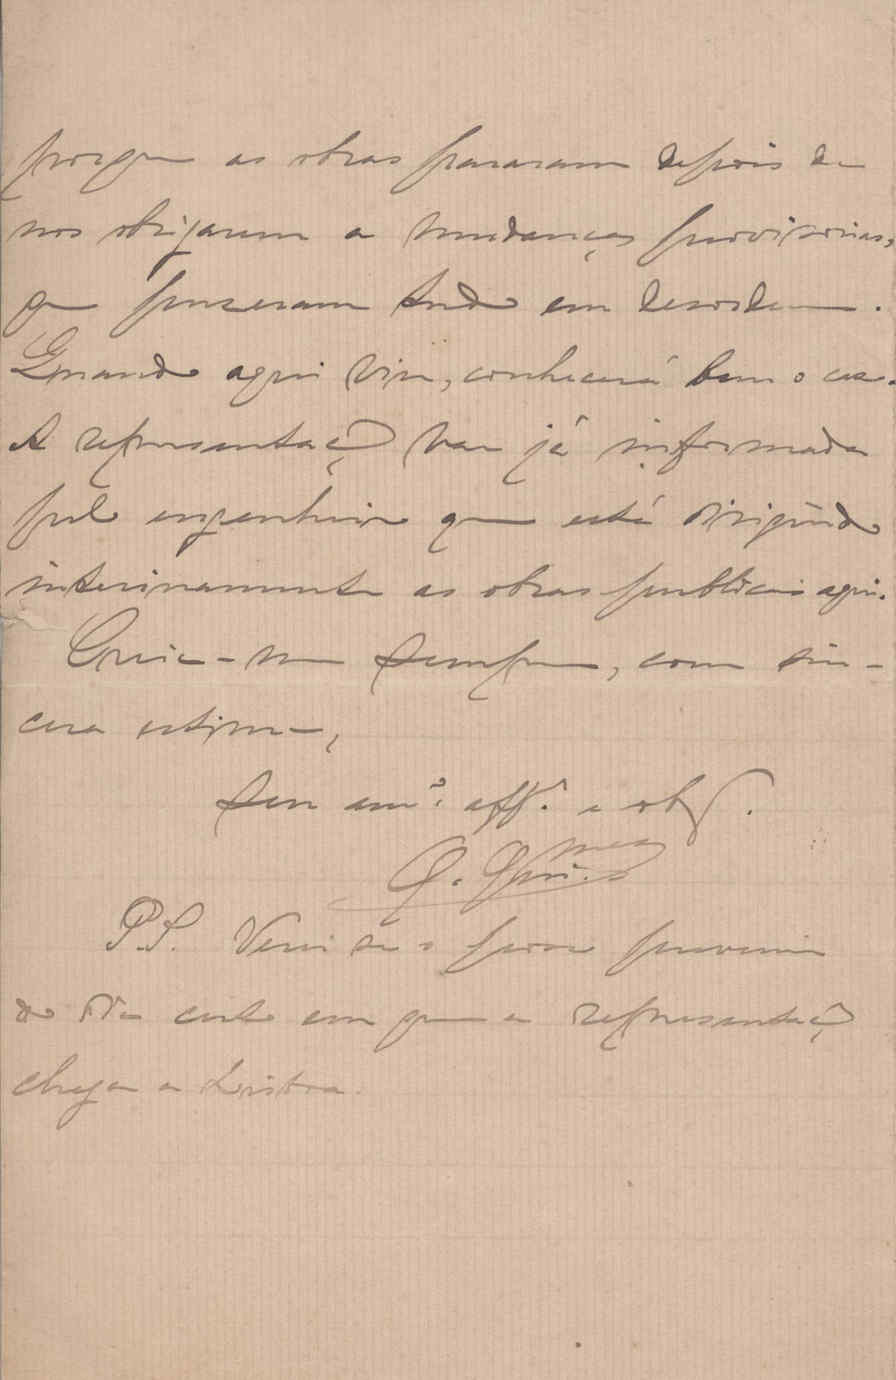 porque as obras pararam depois de
nos obrigarem a mudanças provisorias,
que puzeram tudo em desordem.
Quando aqui vier, conhecerá bem o caso.
A representação vae já informada
pelo engenheiro que está dirigindo
interinamente as obras publicas aqui.
Creia-me sempre, com sin-
cera estima,
Seu am.º aff.º e obg.
P.S. Verei se o posso prevenir
do dia certo em que a representação
chega a Lisboa.